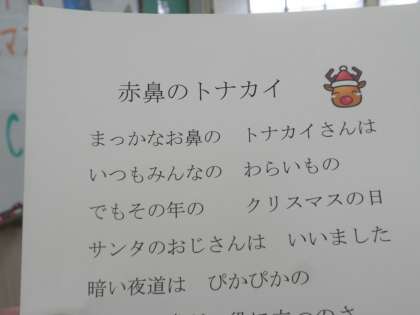 赤鼻のトナカイ
まっかなお鼻の　トナカイさんは
いつもみんなの　わらいもの
でもその年の　　クリスマスの日
サンタのおじさんは　いいました
暗い夜道は　ぴかぴかの